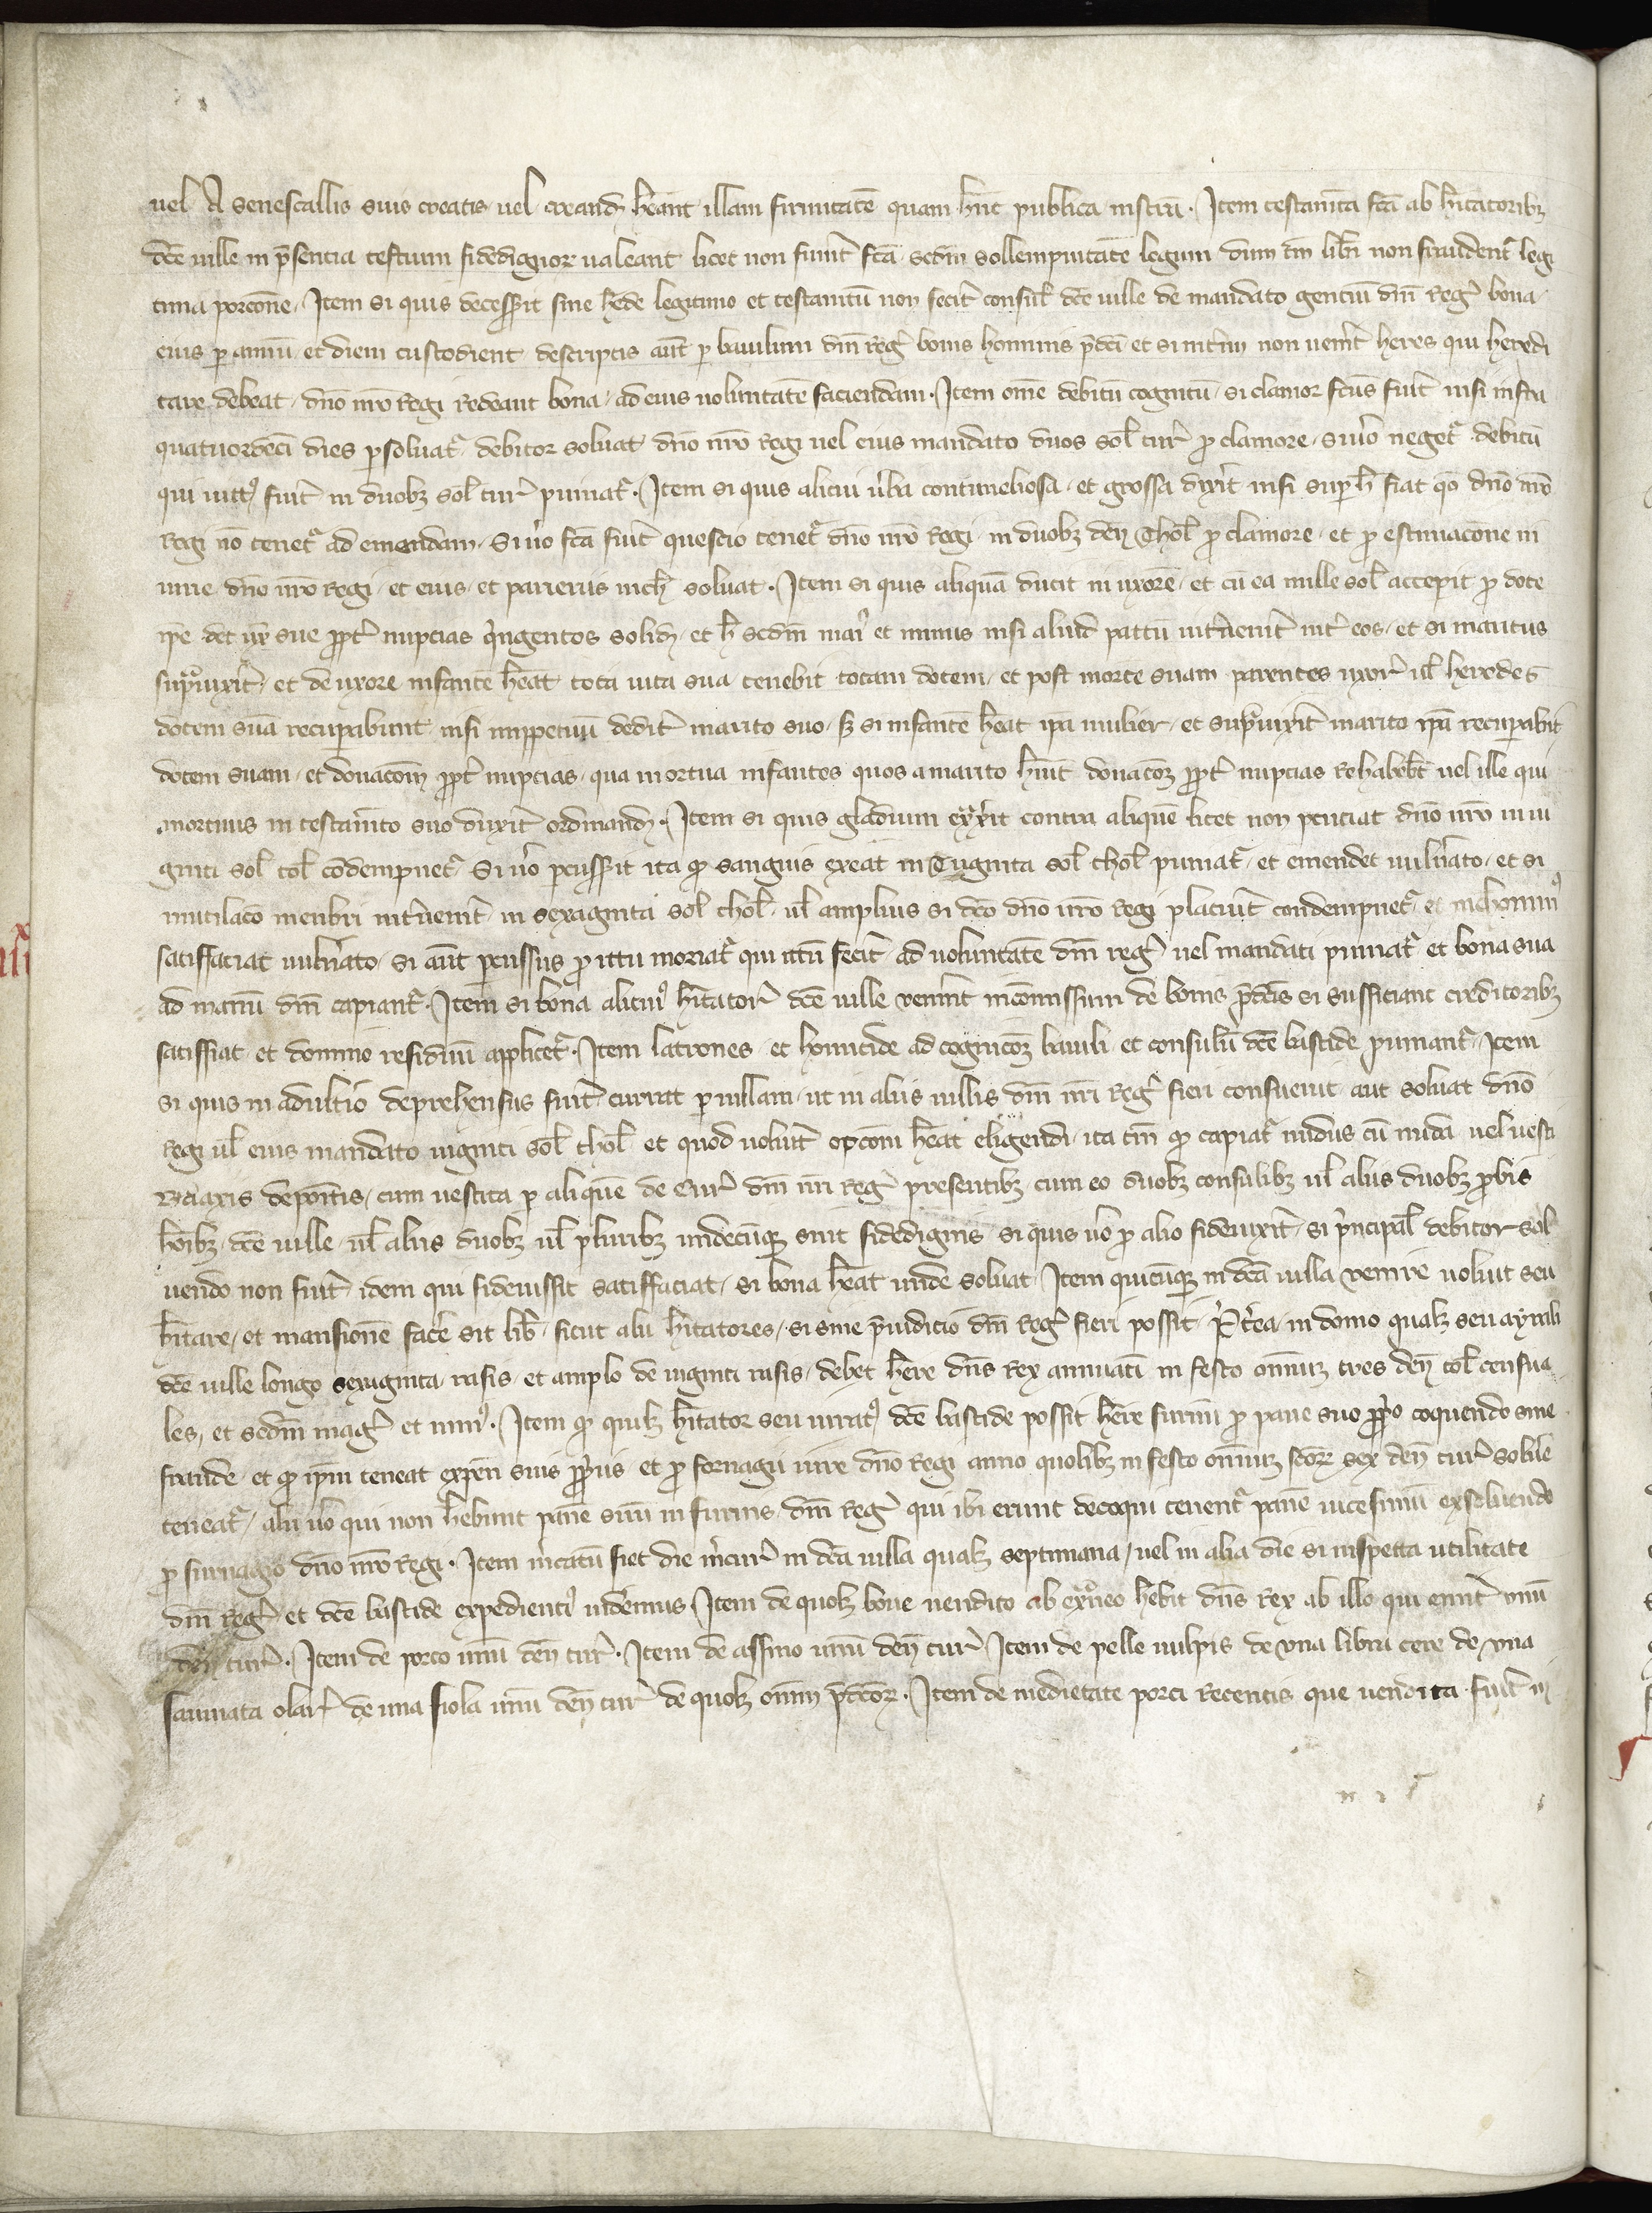 uel A senescallis suis creatis uel creand heant illam firmitatē quam hn̄t publica instrū. Item testam̄ta fc̄a ab hitatoribz
dc̄e uille in p̄sentia testium fidedignor ualeant licet non fuint fc̄a scdm sollempnitatē legum dum tn̄ libi non fraudent legi
tima porcōne. Item si quis decesserit sine hede legitimo et testam̄tū non fecit consul dc̄e uille de mandato gentiū dn̄i Reg bona
eius p annū et diem custodient descriptis aut̄ p baiulum dn̄i Reg bonis hominis p̄dc̄i et si int̄im non uenit heres qui heredi
tare debeat dn̄o nr̄o Regi Redeant bona ad eius uoluntatē faciendam. Item om̄e debitū cognitū si clamor fc̄us fuit nisi infra
quatuordeci dies psoluat debitor soluat dn̄o nr̄o Regi uel eius mandato duos sol tur p clamore si u̇o neget debitū
qui uict fuit in duobz sol tur puniat. Item si quis alicui u̇ba contumeliosa et grossa dixit nisi sup h fiat qō dn̄o nr̄o
Regi nō tenet ad emendam. Si u̇o fc̄a fuit questio tenet dn̄o nr̄o Regi in duobz den Thol p clamore et p estimacōne in
iurie dn̄o nr̄o Regi et eius et parieriis nich soluat. Item si quis aliquā ducit in uxorē et cū ea mille sol accepit p dote
ip̄e det ux sue ppt nupcias q̇ngentos solid et h scdm mai et minus nisi aliud pactū int̄uenit int eos et si maritus
supuixit et de uxore infantē heat tota uita sua tenebit totam dotem et post morte suam parentes uxor ul heredes
dotem suā recupabunt nisi imppetuū dedit marito suo sz si infantē heat ip̄a mulier et supuixit marito ip̄a recupabit
dotem suam et donacōm ppt nupcias qua mortua infantes quos a marito huit donacōz ppt nupcias rehabebt uel ille qui
mortuus in testam̄to suo duxit ordinand. Item si quis gladium exxit contra aliquē licet non penciat dn̄o nr̄o in ui
ginti sol tol cōdempnet. Si u̇o pcusserit ita q sanguis exeat in Tuginta sol thol puniat et emendet uuln̄ato et si
mutilacō menbri int̄uenit in sexaginta sol thol ul amplius si dc̄o dn̄o nr̄o Regi placuit condempnet et nichomin
satiffaciat uuln̄ato. si aut̄ pcussus p ictu moriat qui ictū fecit ad uoluntatē dn̄i reg uel mandati puniat et bona sua
ad manū dn̄i capiant. Item si bona alicui hitator dc̄e uille uenint incōmissum de bonis p̄dc̄is si sufficiant creditoribz
satisfiat et domino residuū applicet. Item latrones et homicide ad cognicōz baiuli et consulū dc̄e bastide puniant. Item
si quis in adultio deprehensus fuit currat p uillam ut in aliis uillis dn̄i nr̄i Reg fieri consueuit aut soluat dn̄o
Regi ul eius mandato uiginti sol thol et quod uoluit opcōm heat eligendi ita tn̄ q capiat nudus cū nuda uel uesti
braxis depōitis cum uestita p aliquē de Cur dn̄i nr̄i Reg presentibz cum eo duobz consulibz ul aliis duobz pbis
hoibz dc̄e uille ul aliis duobz ul pluribz undecūqz sint fidedignis si quis u̇o p alio fideiuxit si p̄ncipal debitor sol
uendo non fuit idem qui fideiussit satiffaciat si bona heat unde soluat Item quicūqz in dc̄a uilla uenire uoluit seu
hitare et mansionē facere sit lib sicut alii hitatores si sine p̄iudicio dn̄i Reg fieri possit. P̄t̄ea in domo qualz seu ayrali
dc̄e uille longo sexaginta rasis et amplo de uiginti rasis debet here dn̄s Rex annuati in festo om̄iuz tres den tol censua
les et scdm mag et min. Item q quilz hitator seu iurat dc̄e bastide possit here furnū p pane suo ppo coquendo sine
fraude et q ip̄m teneat expen suis ppiis et p fornagii iure dn̄o Regi anno quolibz in festo om̄iuz sc̄oꝝ sex den tur solue
teneat alii u̇o qui non hebunt panē suū in furnis dn̄i Reg qui ibi erunt decoqui tenent panē uicesimū exsoluendo
p furnagio dn̄o nr̄o Regi. Item m̄catū fiet die m̄cur in dc̄a uilla qualz septimana uel in alia die si inspecta utilitate
dn̄i Reg et dc̄e bastide expedienti uidemus Item de quolz boue uendito ab exneo hebit dn̄s Rex ab illo qui emit unū
den tur. Item de porco unū den tur. Item de assino unū den tur Item de pelle uulpis de una libra cere de una
saumata olar de una fiola unū den tur de quolz om̄iū p̄dc̄oꝝ. Item de medietate porci Recentis que uendita fuit in